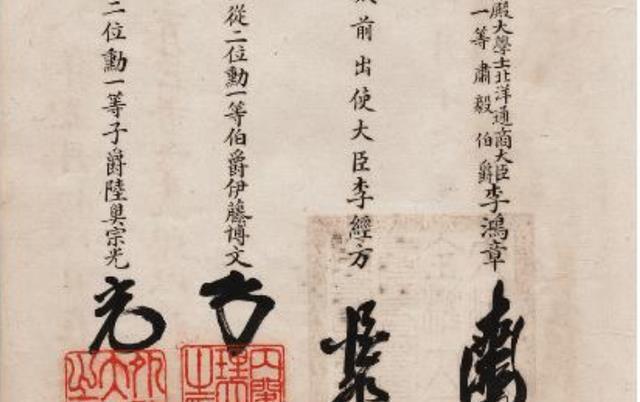 殿大學士北洋通商大臣
一等肅毅伯爵
李鴻章
前出使大臣李經方
從二位勳一等伯爵伊藤博文
二位勳一等子爵陸奥宗光
光